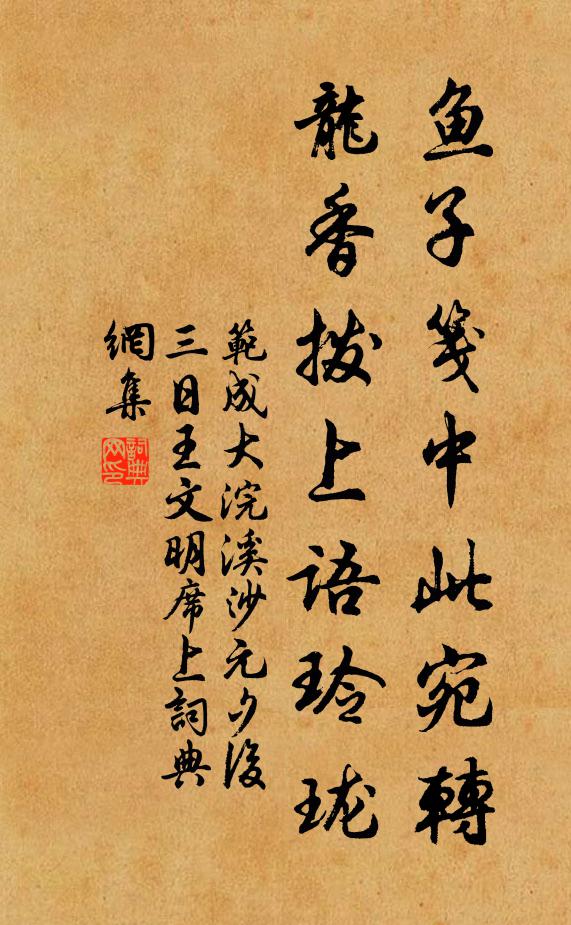 鱼子笺中此宛轉
龍香拨上语玲珑
範成大浣溪沙元夕後
三日王文明席上詞典
網集
詞典网印